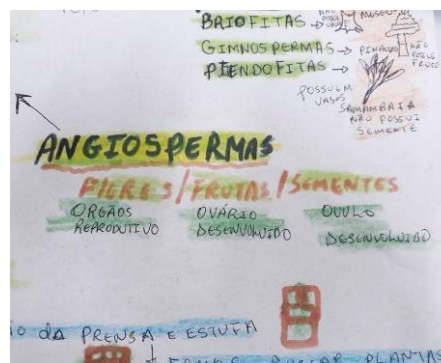 BRIOFITAS → MUSGO
GIMNOSPERMAS → PINHEIRO NÃO POSSUI FRUTO
PTENDOFITAS →
POSSUEM
VASOS
SAMAMBAIA
NÃO POSSUI
SEMENTE
ANGIOSPERMAS
FLORES/FRUTAS/SEMENTES
ORGÃOS OVÁRIO OVULO
REPRODUTIVO DESENVOLVIDO DESENVOLVIDO
DA PRENSA E ESTUFA
PLANTAS